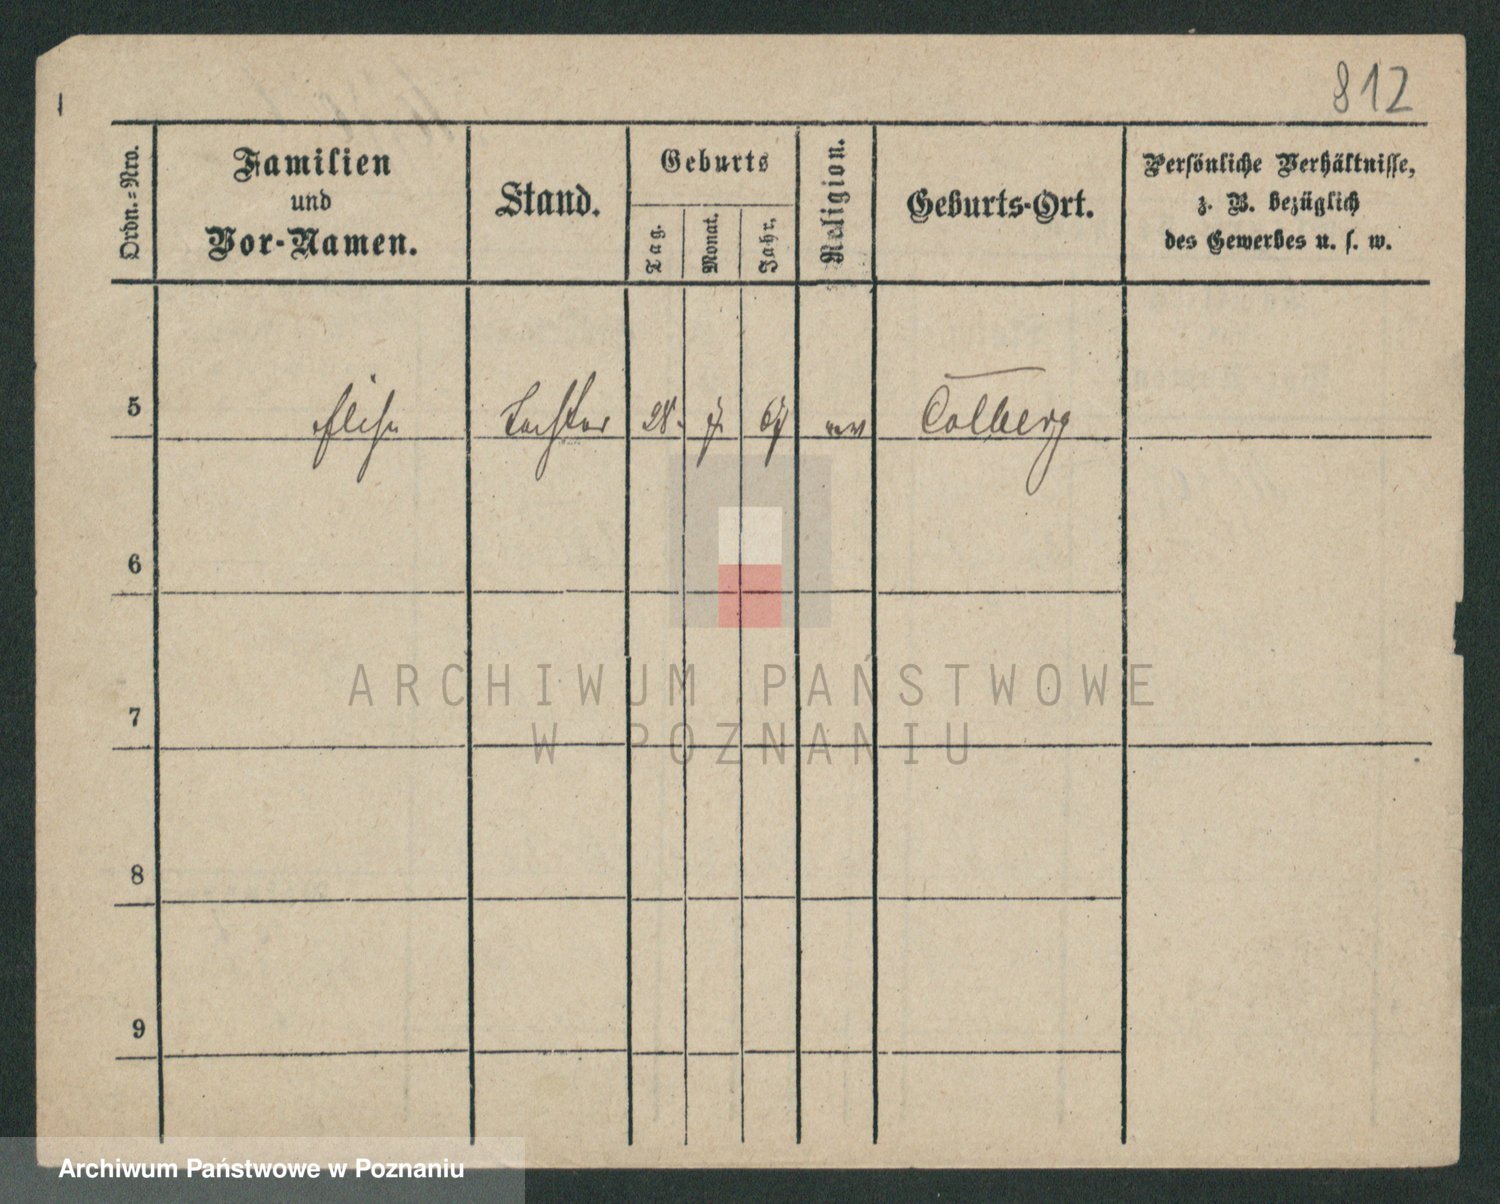 812
Ordn.-Nro.
Familien
und
Vor-Namen.
Stand.
Geburts
Tag.
Monat.
Jahr.
Religion.
Geburts-Ort.
Persönliche Verhältnisse,
z. B. bezüglich
des Gewerbes u. s. w.
5 Elise Tochter 28. 7. 67 Colberg
6
7
8
9
ARCHIWUM PAŃSTWOWE
W POZNANIU
Archiwum Państwowe w Poznaniu